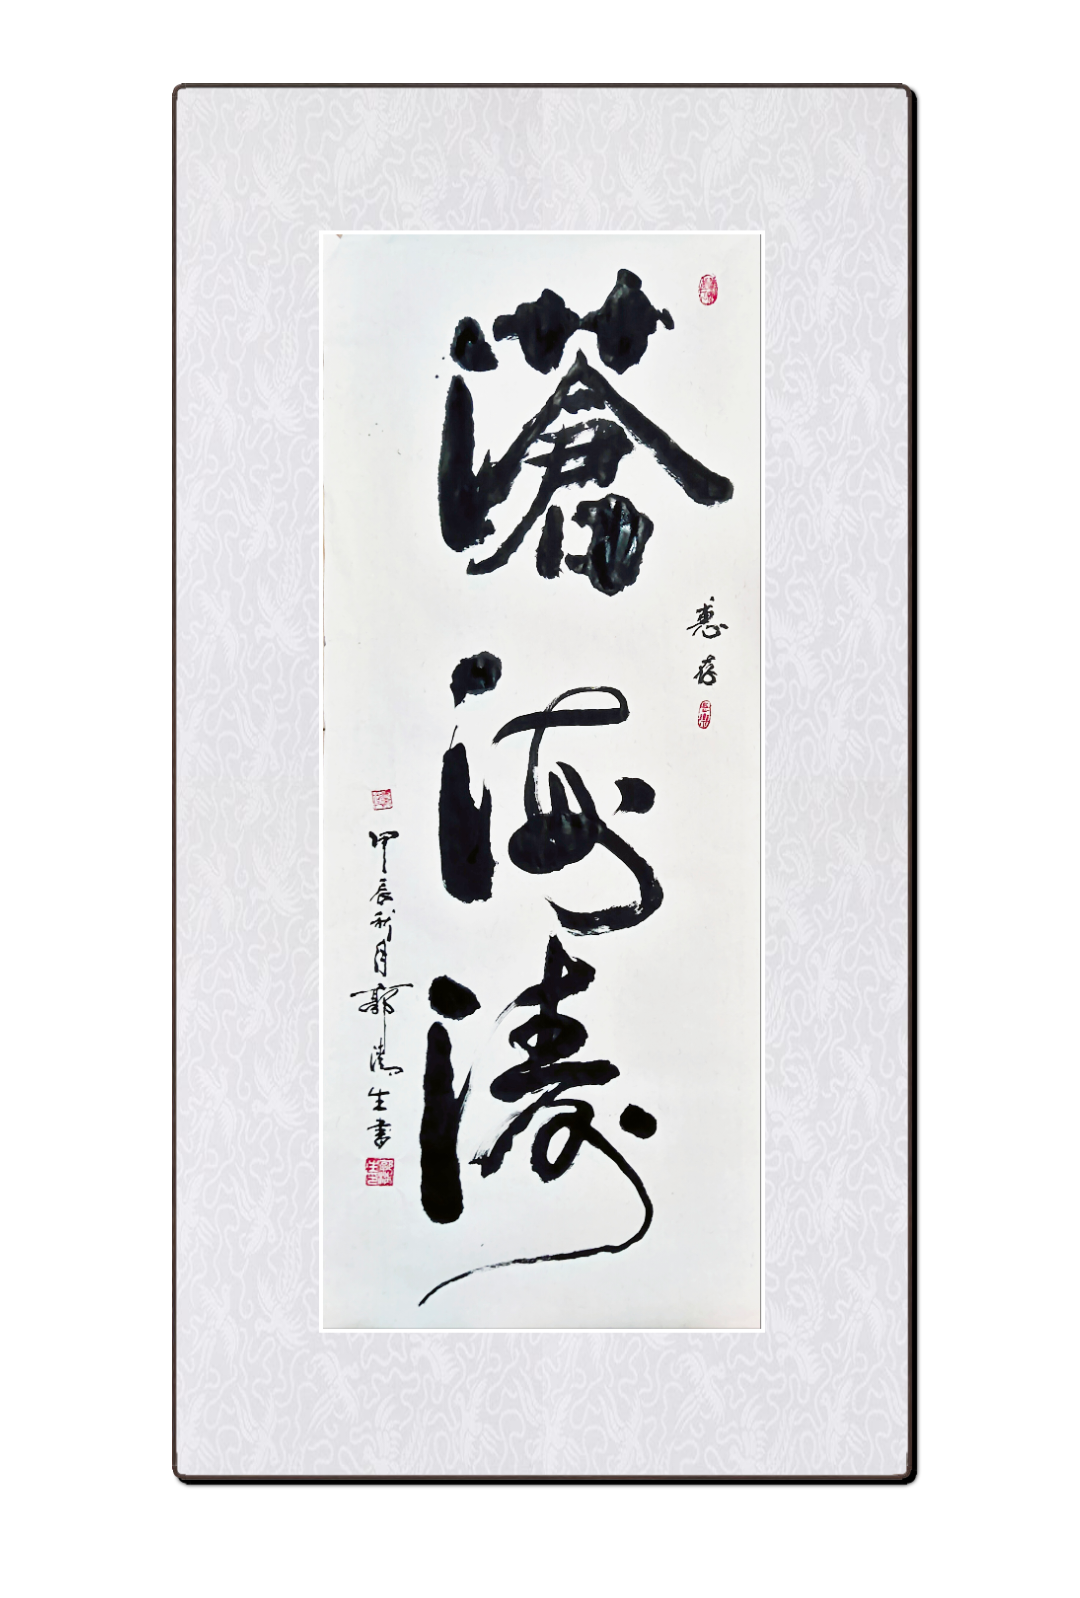 惠存
濸海濤
甲辰秋月郭生書